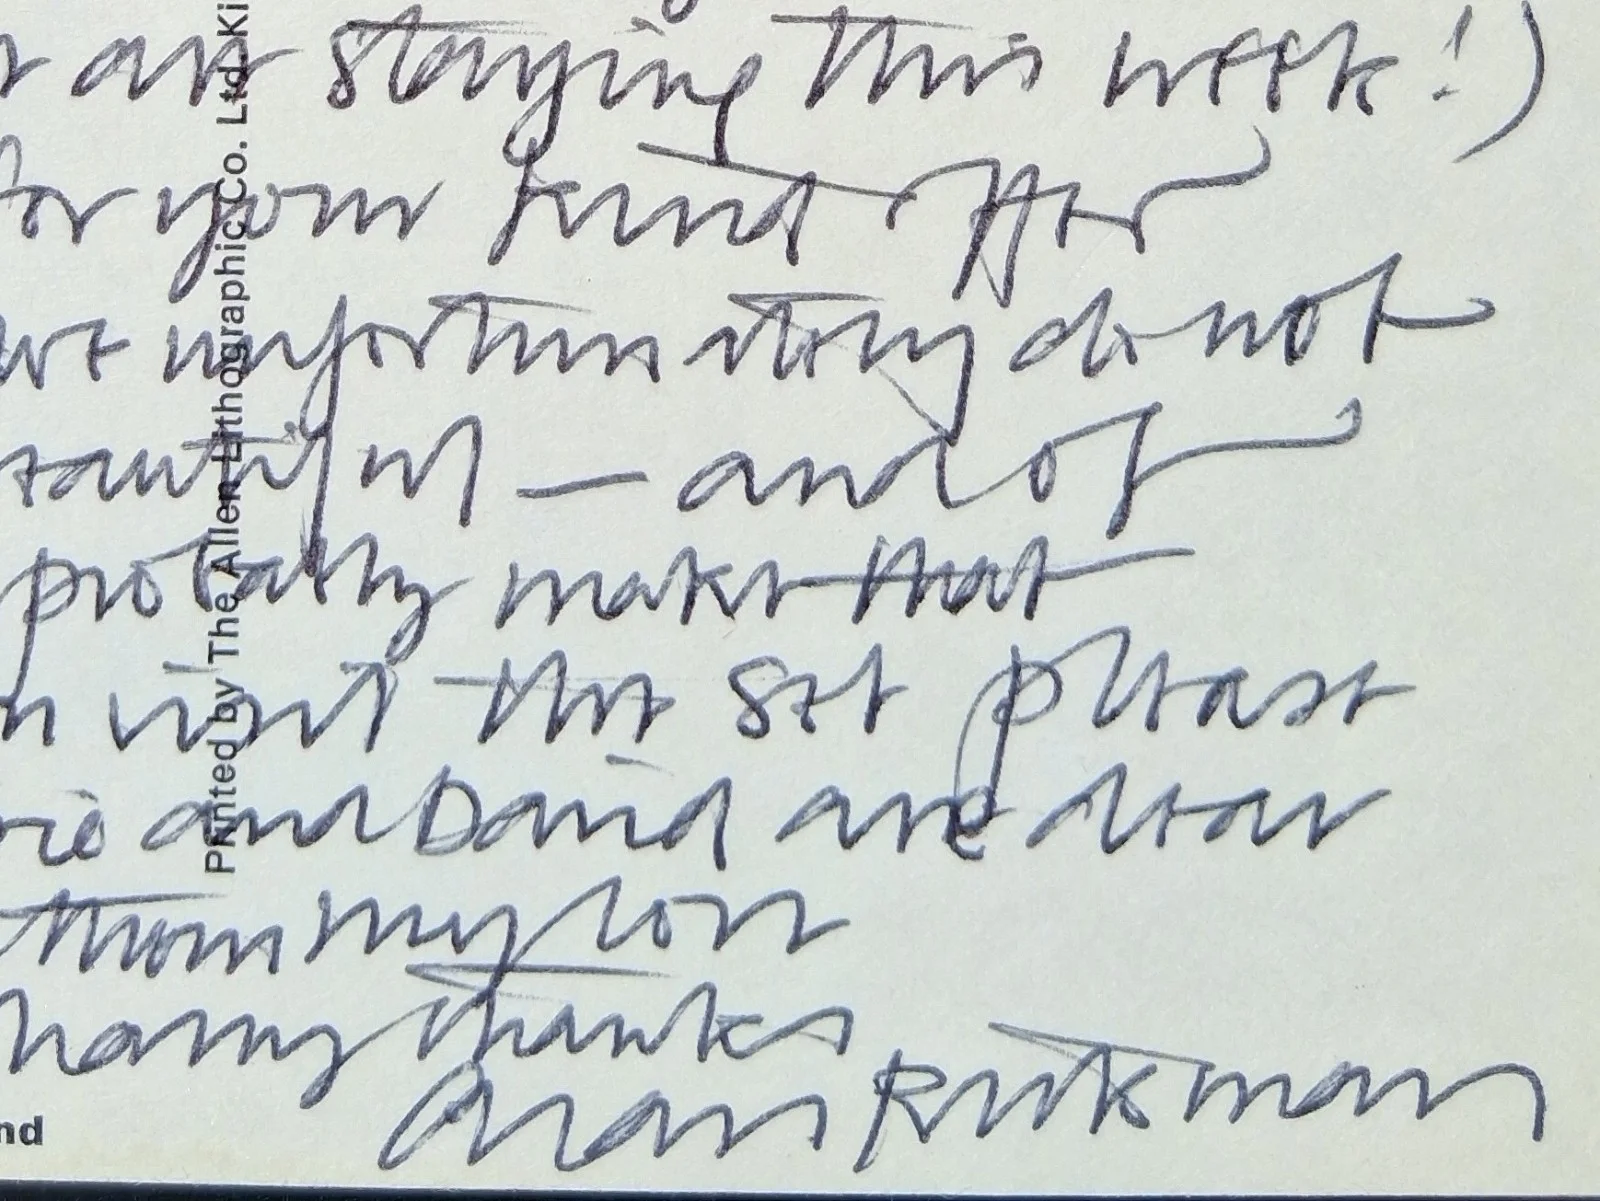 are staying this week!)
for your kind offer
unfortunately do not
beautiful — and of
probably make that
visit the set please
and David are dear
them my love
Many thanks
Alan Rickman
Printed by The Allen Lithographic Co. Ltd. Ki
nd